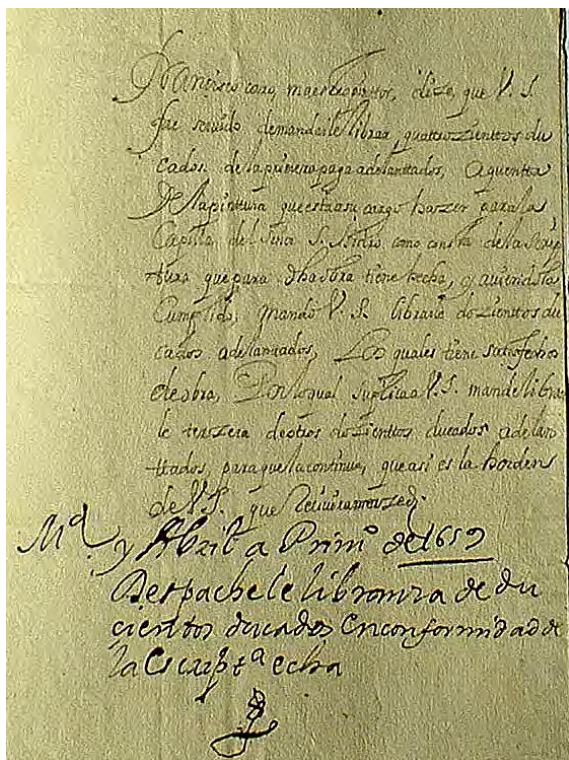 Francisco caro, maestro pinttor, dize, que V. S.
fue seruido demandarle librar, quattrozienttos du
cados. de la primera paga adelanttados, a quentta
De la pinttura que esta asu cargo hazer para la
Capilla del Sr S. Isidro como consta de la Scrip
ttura que para dha obra tiene hecha, y auiendola
Cumplido, mando V. S. librarle dozienttos du
cados adelanttados, Los quales tiene sattisfechos
de obra, Por lo qual suplica a V. S. mande librar
le terzera de ottros dozienttos ducados adelan
ttados, para que la continue, que asi es la horden
de V. S. que Reciuira merzed.
Md y Abril a Primo de 1659
Despachele libranza de du
cientos ducados en conformidad de
la escriptª echa